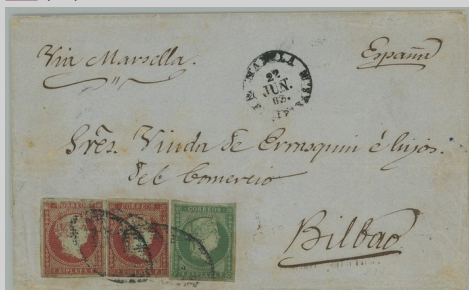 Via Marsella.
España
22
JUN.
Sres. Viuda de Ermaquin é hijos.
del Comercio
Bilbao
CORREOS CORREOS CORREOS